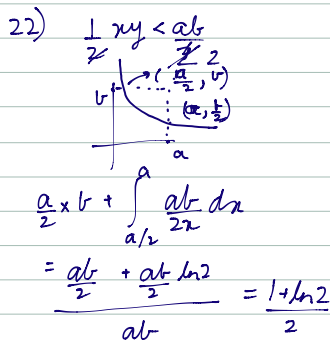 22) 1/2 xy < ab/2 2
(a/2, b)
b
(a, b/2)
a
a/2 × b + ∫_{a/2}^{a} ab/2x dx
= (ab/2 + ab/2 ln2)/ab = (1+ln2)/2